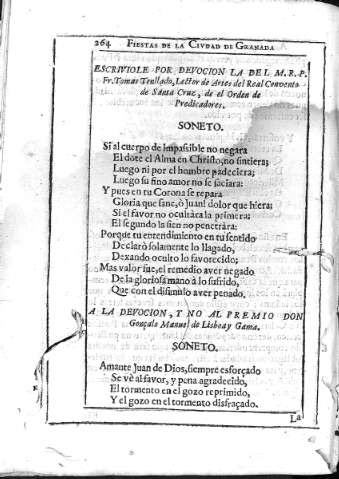 264 FIESTAS DE LA CIVDAD DE GRANADA
ESCRIVIOLE POR DEVOCION LA DEL M.R.P.
Fr. Tomas Trullado, Lector de Artes del Real Convento
de Santa Cruz, de el Orden de
Predicadores.
SONETO.
Si al cuerpo de impassible no negara
El dote el Alma en Christo, no sintiera;
Luego ni por el hombre padeciera;
Luego su fino amor no se saciara:
Y pues en tu Corona se repara
Gloria que sane, ò Juan! dolor que hiera;
Si el favor no ocultàra la primera;
El segundo la sien no penetràra:
Porque tu entendimiento en tu sentido
Declarò solamente lo llagado,
Dexando oculto lo favorecido;
Mas valor fue, el remedio aver negado
De la gloriosa mano à lo sufrido,
Que con el disimulo aver penado,
A LA DEVOCION, Y NO AL PREMIO DON
Gonçalo Manuel de Lisboa y Gama.
SONETO.
Amante Juan de Dios, siempre esforçado
Se vè al favor, y pena agradecido,
El tormento en el gozo reprimido,
Y el gozo en el tormento disfraçado.
La